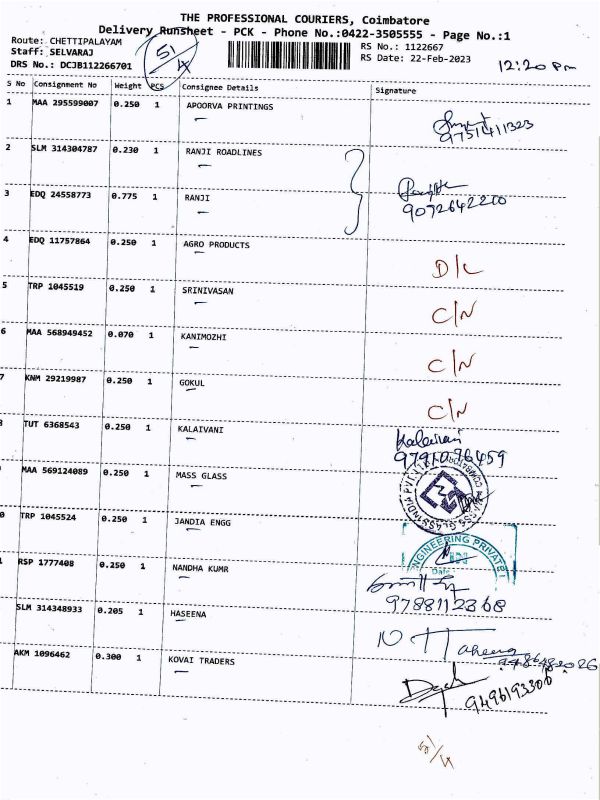 THE PROFESSIONAL COURIERS, Coimbatore
Delivery Runsheet - PCK - Phone No.:0422-3505555 - Page No.:1
Route: CHETTIPALAYAM
Staff: SELVARAJ
DRS No.: DCJB112266701
51/
RS No.: 1122667
RS Date: 22-Feb-2023
12:20 Pm
S No Consignment No Weight PCS Consignee Details Signature
1 MAA 295599007 0.250 1 APOORVA PRINTINGS
9751411323
2 SLM 314304787 0.230 1 RANJI ROADLINES
3 EDQ 24558773 0.775 1 RANJI
9072642200
4 EDQ 11757864 0.250 1 AGRO PRODUCTS
D/L
5 TRP 1045519 0.250 1 SRINIVASAN
C/N
6 MAA 568949452 0.070 1 KANIMOZHI
C/N
7 KNM 29219987 0.250 1 GOKUL
C/N
TUT 6368543 0.250 1 KALAIVANI
Kalaivani
9791096459
MAA 569124089 0.250 1 MASS GLASS
0 TRP 1045524 0.250 1 JANDIA ENGG
NGINEERING PRIVATE
Date
RSP 1777408 0.250 1 NANDHA KUMR
9788112368
SLM 314348933 0.205 1 HASEENA
AKM 1096462 0.300 1 KOVAI TRADERS
9496193306